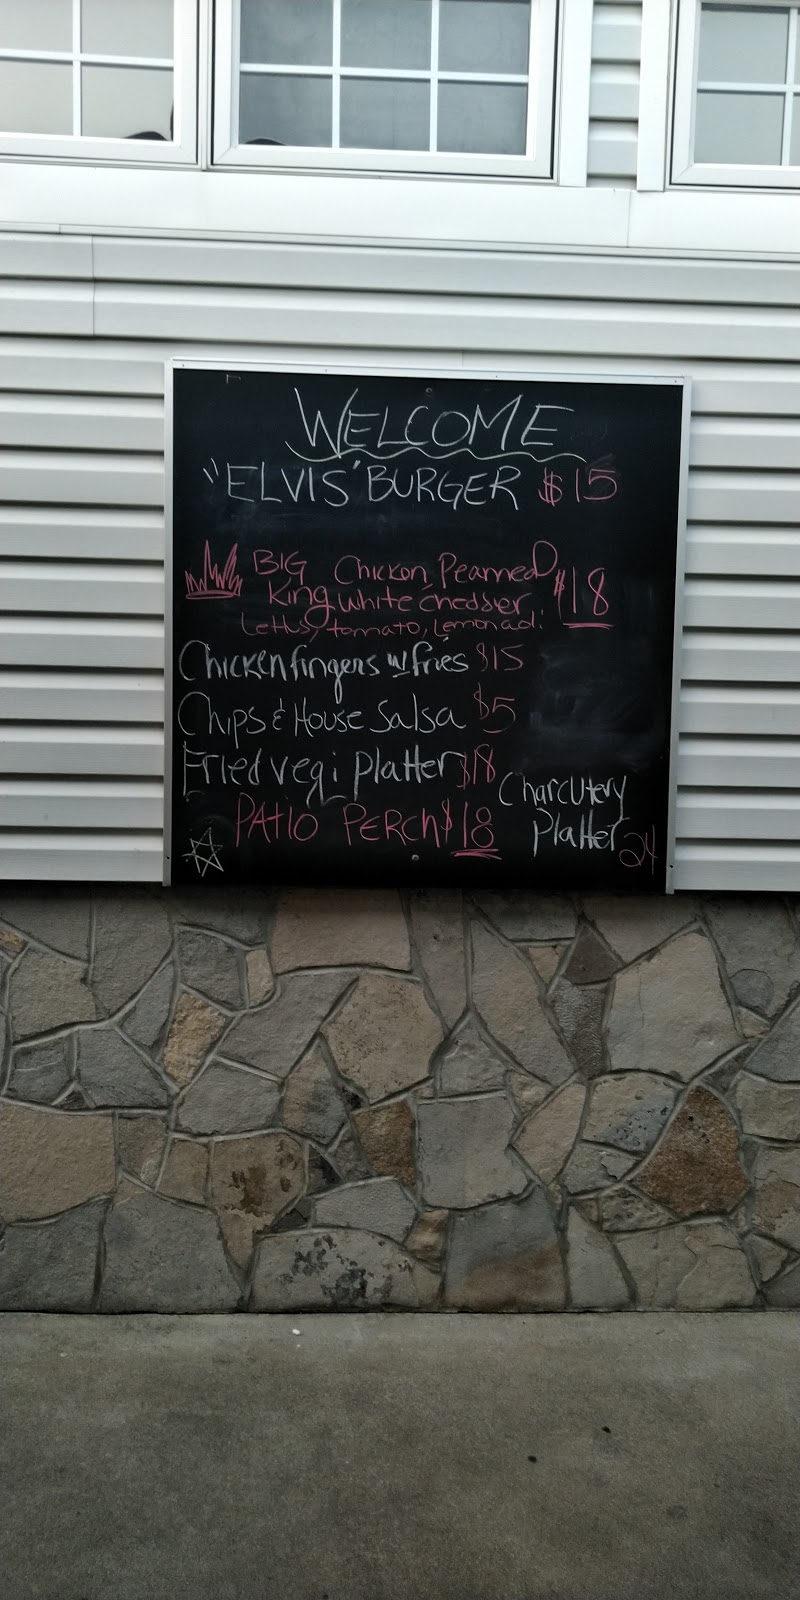 WELCOME
"ELVIS" BURGER $15
BIG Chicken, Peameal
King white cheddar $18
Lettus, tomato, Lemon aoli
Chicken fingers w/ fries $15
Chips & House Salsa $5
Fried vegi platter $18
PATIO PERCH $18
Charcutery
Platter 24